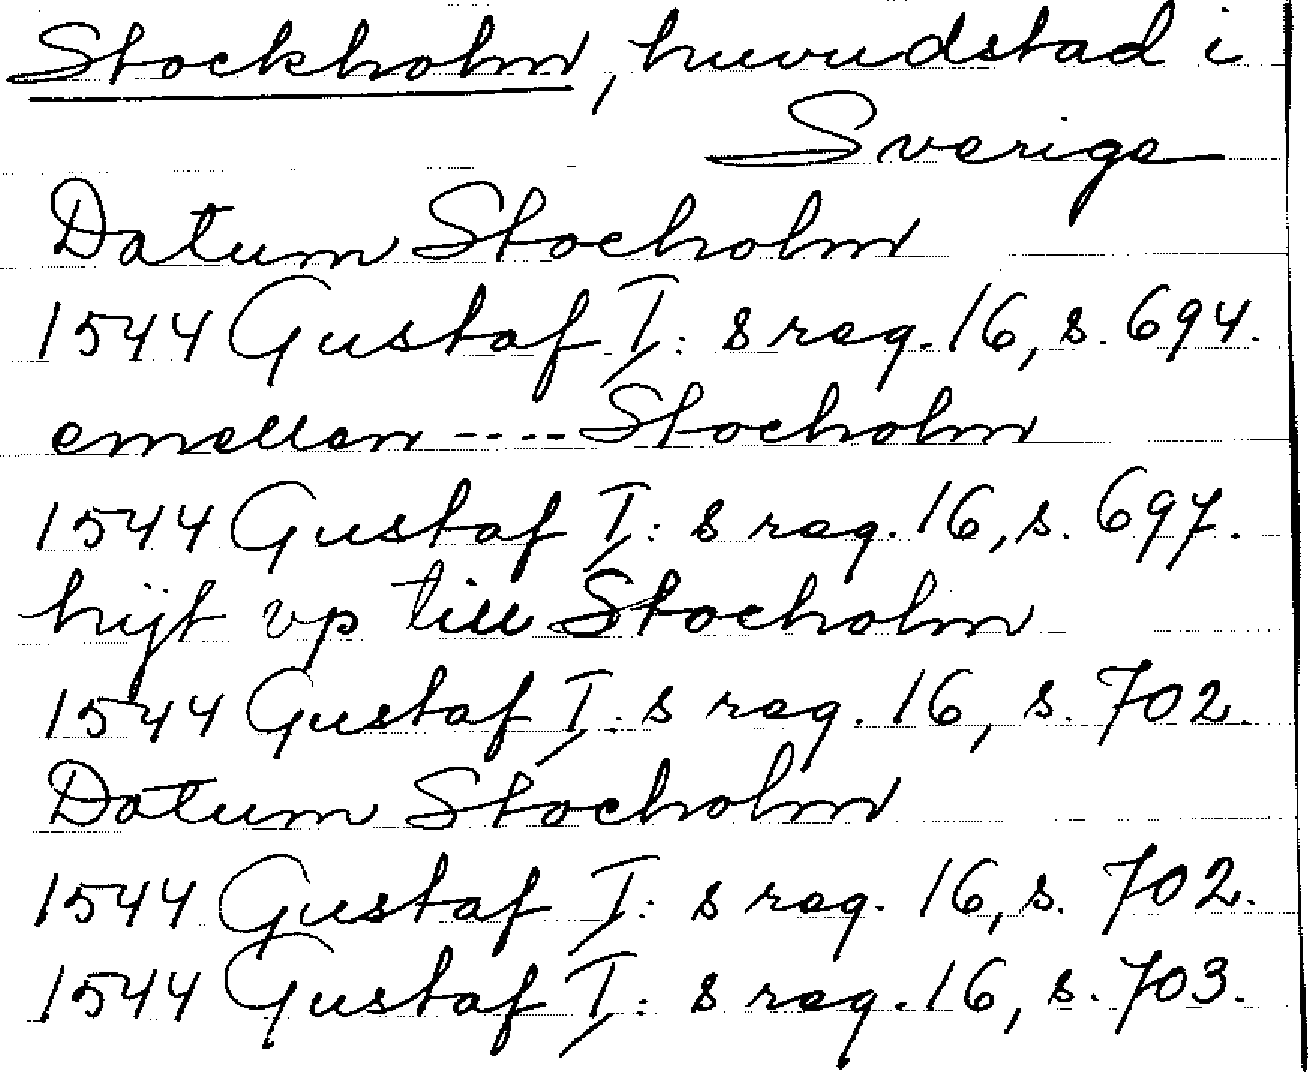 Stockholm, huvudstad i
Sverige
Datum Stocholm
1544 Gustaf I: s reg. 16, s. 694.
emellen ---- Stocholm
1544 Gustaf I: s reg. 16, s. 697.
hijt vp till Stocholm
1544 Gustaf I: s reg. 16, s. 702.
Datum Stocholm
1544 Gustaf I: s reg. 16, s. 702.
1544 Gustaf I: s reg. 16, s. 703.